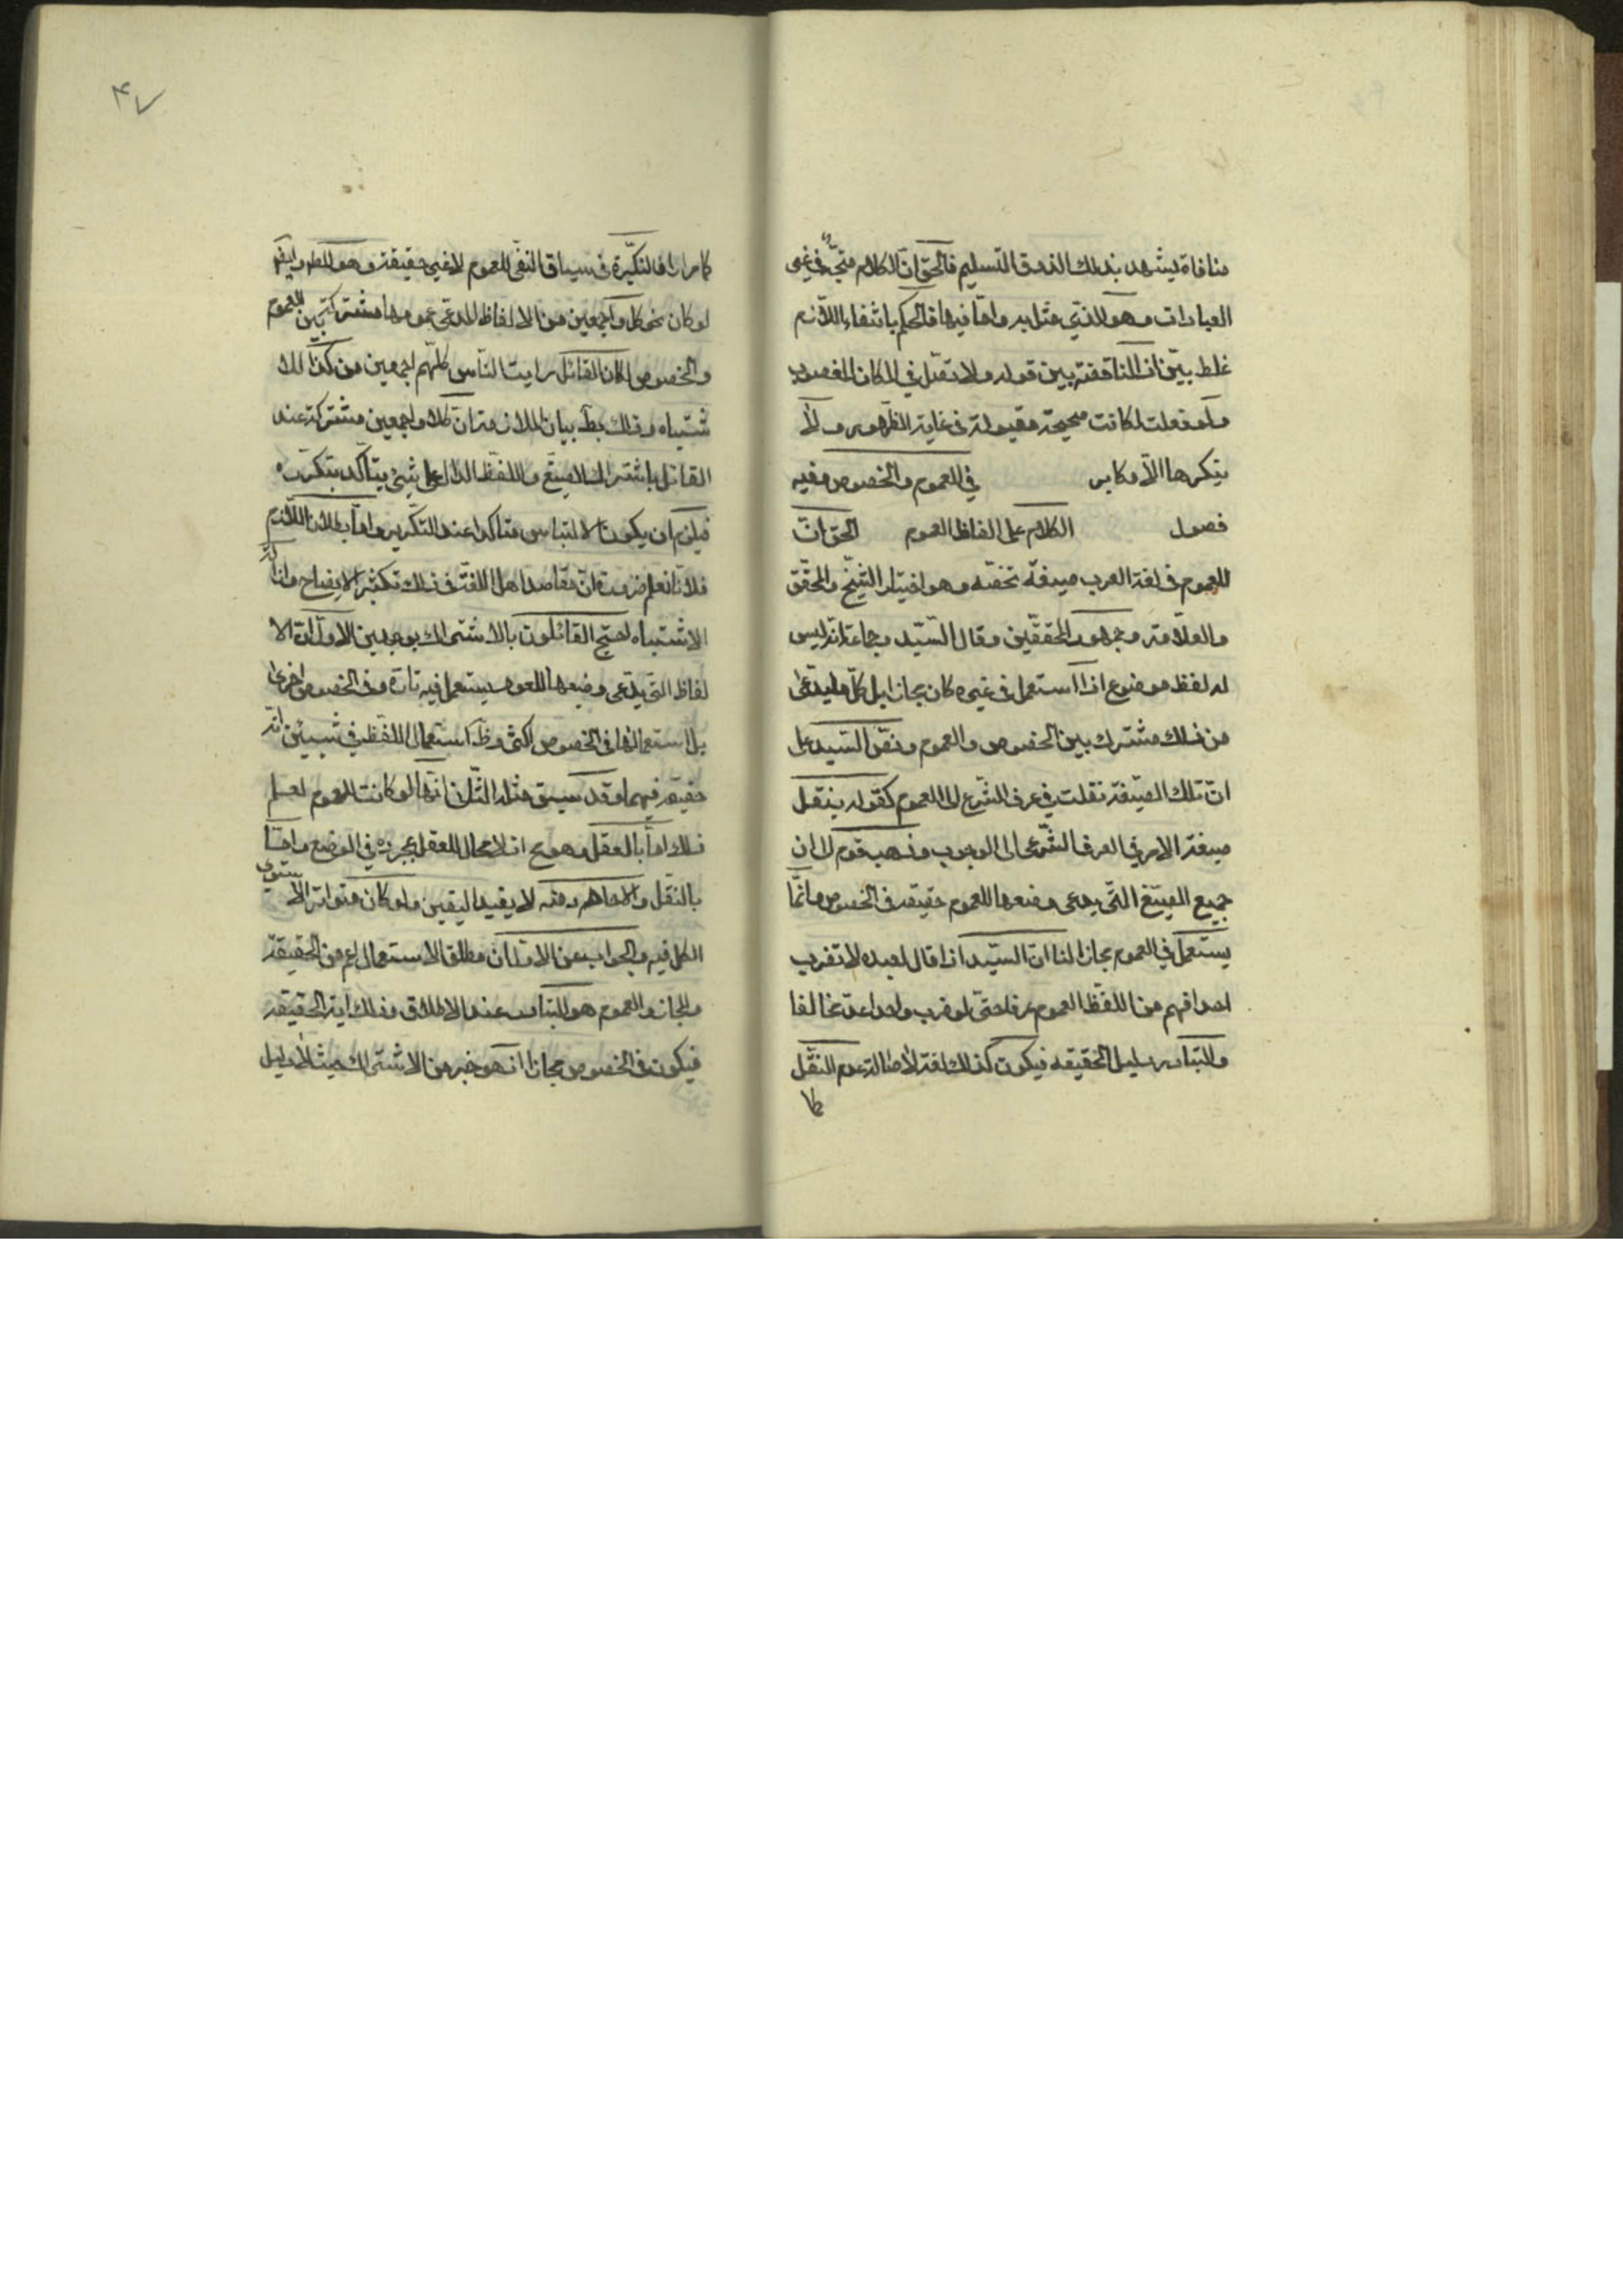 منافاة يشهد بذلك الذوق السليم فالحق ان الكلام متجه في غير
العبادات وهو الذي مثل به واما فيها فالحكم بانتفاء اللازم
غلط بين اذ المناقضة بين قوله ولا تصل في المكان المغصوب
ولو فعلت لكانت صحيحة مقبولة في غاية الظهور ولا
ينكرها الا مكابر في العموم والخصوص وفيه
فصول الكلام على الفاظ العموم الحق ان
للعموم في لغة العرب صيغة تخصه وهو اختيار الشيخ والمحقق
والعلامة وجمهور المحققين وقال السيد وجماعة انه ليس
له لفظ موضوع اذا استعمل في غيره كان مجازا بل كل ما يدعى
من ذلك مشترك بين الخصوص والعموم ونص السيد على
ان تلك الصيغة نقلت في عرف الشرع الى العموم كقوله بنقل
صيغة الامر في العرف الشرعي الى الوجوب وذهب قوم الى ان
جميع الصيغ التي يدعى وضعها للعموم حقيقة في الخصوص وانما
يستعمل في العموم مجازا لنا ان السيد اذا قال لعبده لا تضرب
احدا فهم من اللفظ العموم عرفا حتى لو ضرب واحدا عد مخالفا
والتبادر دليل الحقيقه فيكون كذلك لغة لاصالة عدم النقل
۴۷
كما مرارا فالنكرة في سياق النفي للعموم لا غير حقيقة وهو المطلوب وايضا
لو كان نحو كل واجمعين من الالفاظ المدعى عمومها مشتركة بين العموم
والخصوص لكان القائل رايت الناس كلهم اجمعين مؤكدا للا
شتباه وذلك بط بيان الملازمة ان كلا واجمعين مشتركة عند
القائل باشتراك الصيغ واللفظ الدال على شيء يتاكد بتكريره
فيلزم ان يكون الالتباس متاكدا عند التكرير واما بطلان اللازم
فلانا نعلم ضرورة ان مقاصد اهل اللغة في ذلك تكثير الايضاح وازالة
الاشتباه احتج القائلون بالاشتراك بوجهين الاول ان الا
لفاظ التي يدعى وضعها للعموم يستعمل فيه تارة وفي الخصوص اخرى
بل استعمالها في الخصوص اكثر وظ استعمال اللفظ في شيئين انه
حقيقة فيهما وقد سبق مثله الثاني انها لو كانت للعموم لعلم
ذلك اما بالعقل وهو مح اذ لا مجال للعقل بمجرده في الوضع واما
بالنقل والاحاد منه لا يفيد اليقين ولو كان متواترا لاستوى
الكل فيه والجواب عن الاول ان مطلق الاستعمال اعم من الحقيقة
والمجاز والعموم هو المتبادر عند الاطلاق وذلك اية الحقيقة
فيكون في الخصوص مجازا اذ هو خير من الاشتراك حيث لا دليل